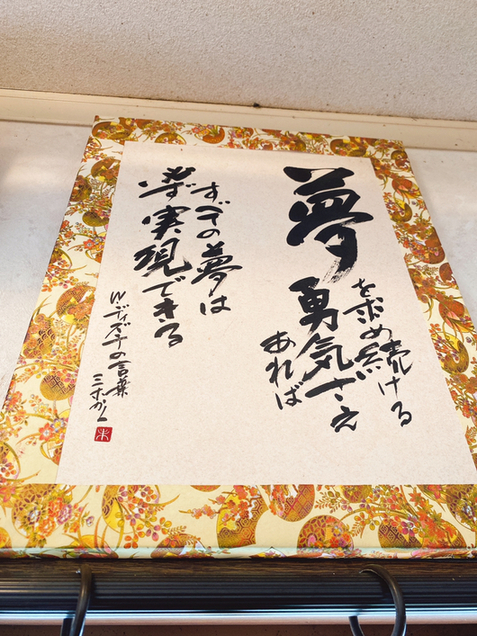 夢を求め続ける
勇気さえ
あれば
すべての夢は
必ず実現できる
W.ディズニーの言葉